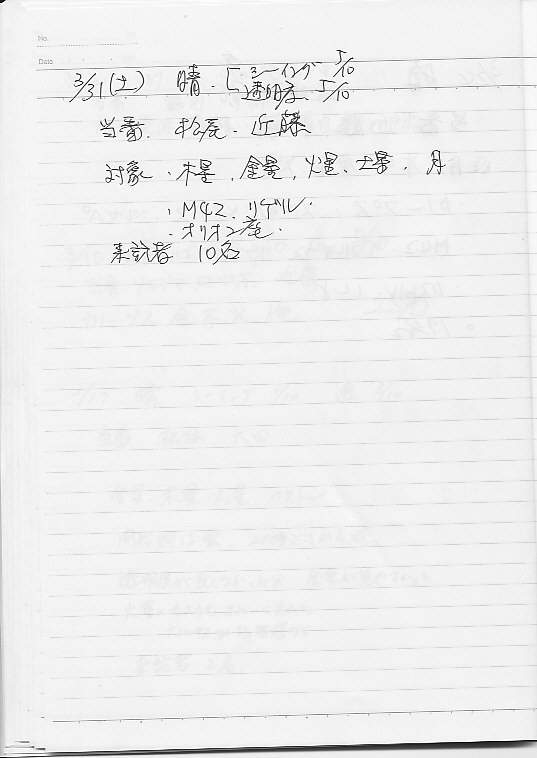 No.
Date
3/31(土) 晴. [シーイング 5/10
透明度. 5/10
当番. 松尾. 近藤
対象 ・木星. 金星, 火星、土星、月
・M42. リゲル.
・オリオン座.
来訪者 10名